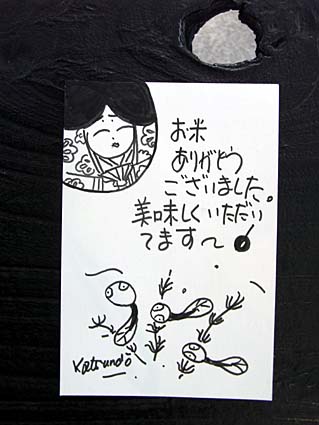 お米
ありがとう
ございました。
美味しくいただい
てます〜